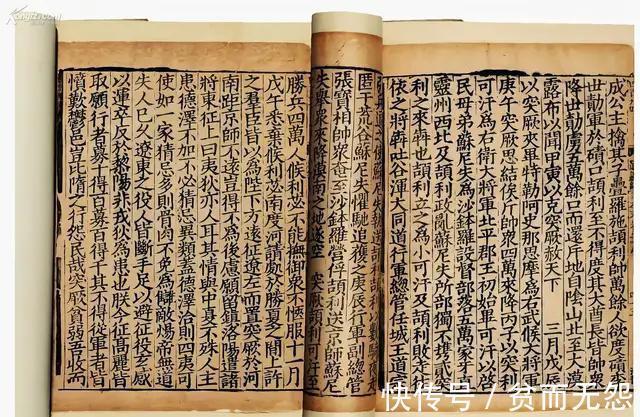 成公主擒其子疊羅施頡利帥萬餘欲度磧
世勣軍於磧口頡利至不得度其大酋長皆帥
降世勣虜五萬餘口而還斥地自陰山北至大漠
露布以聞甲寅以克突厥赦天下 三月戊
以突厥夾畢特勒阿史那思摩為右武候大將
庚午突厥思結俟斤帥衆四萬來降丙子以突
可汗為右衛大將軍北平郡王初始畢可汗以
民母弟蘇尼失為沙鉢羅設督部落五萬家牙
靈州西北及頡利政亂蘇尼失所部獨不攜貳
利之來奔也頡利立之為小可汗及頡利敗走
依之將奔吐谷渾大同道行軍總管任城王道
蘇尼失執送頡利頡利以數騎夜走
匿于荒谷蘇尼失懼馳追獲之庚辰行軍副總管
張寶相帥衆奄至沙鉢羅營俘頡利送京師蘇尼
失舉衆來降漠南之地遂空 突厥頡利可汗至
勝兵四萬人候利苾不能撫御衆不愜服十一月
戊午悉棄候利苾南度河請處於勝夏之間上許
之羣臣皆以為陛下方遠征遼左而置突厥於河
南距京師不遠豈得不為後慮願留鎮洛陽遣諸
將東征上曰夷狄亦人耳其情與中夏不殊人主
患德澤不加不必猜忌異類蓋德澤洽則四夷可
使如一家猜忌多則骨肉不免為讎敵煬帝無道
失人已久遼東之役人皆斷手足以避征役玄感
以運卒反於黎陽非戎狄為患也朕今征高麗皆
取願行者募十得百募百得千其不得從軍者皆
憤歎鬱邑豈比隋之行怨民哉突厥貧弱吾收而
快传号/贫而无怨